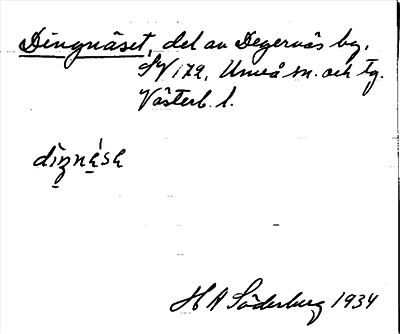 Dingnäset, del av Degernäs by,
SV 172, Umeå sn. och tg.
Västerb. l.
H A Söderburg 1934